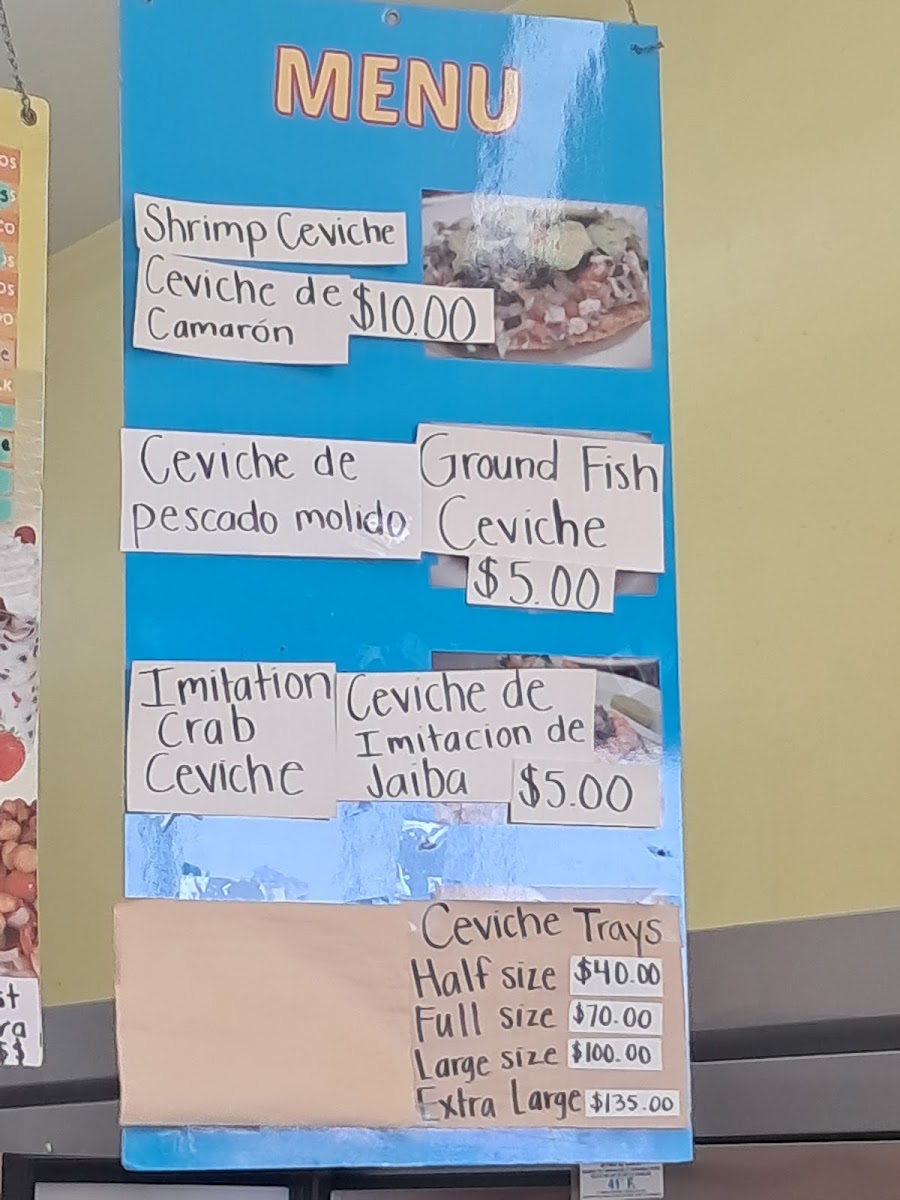 MENU
Shrimp Ceviche
Ceviche de
Camarón
$10.00
Ceviche de
pescado molido
Ground Fish
Ceviche
$5.00
Imitation
Crab
Ceviche
Ceviche de
Imitacion de
Jaiba
$5.00
Ceviche Trays
Half size $40.00
Full size $70.00
Large size $100.00
Extra Large $135.00